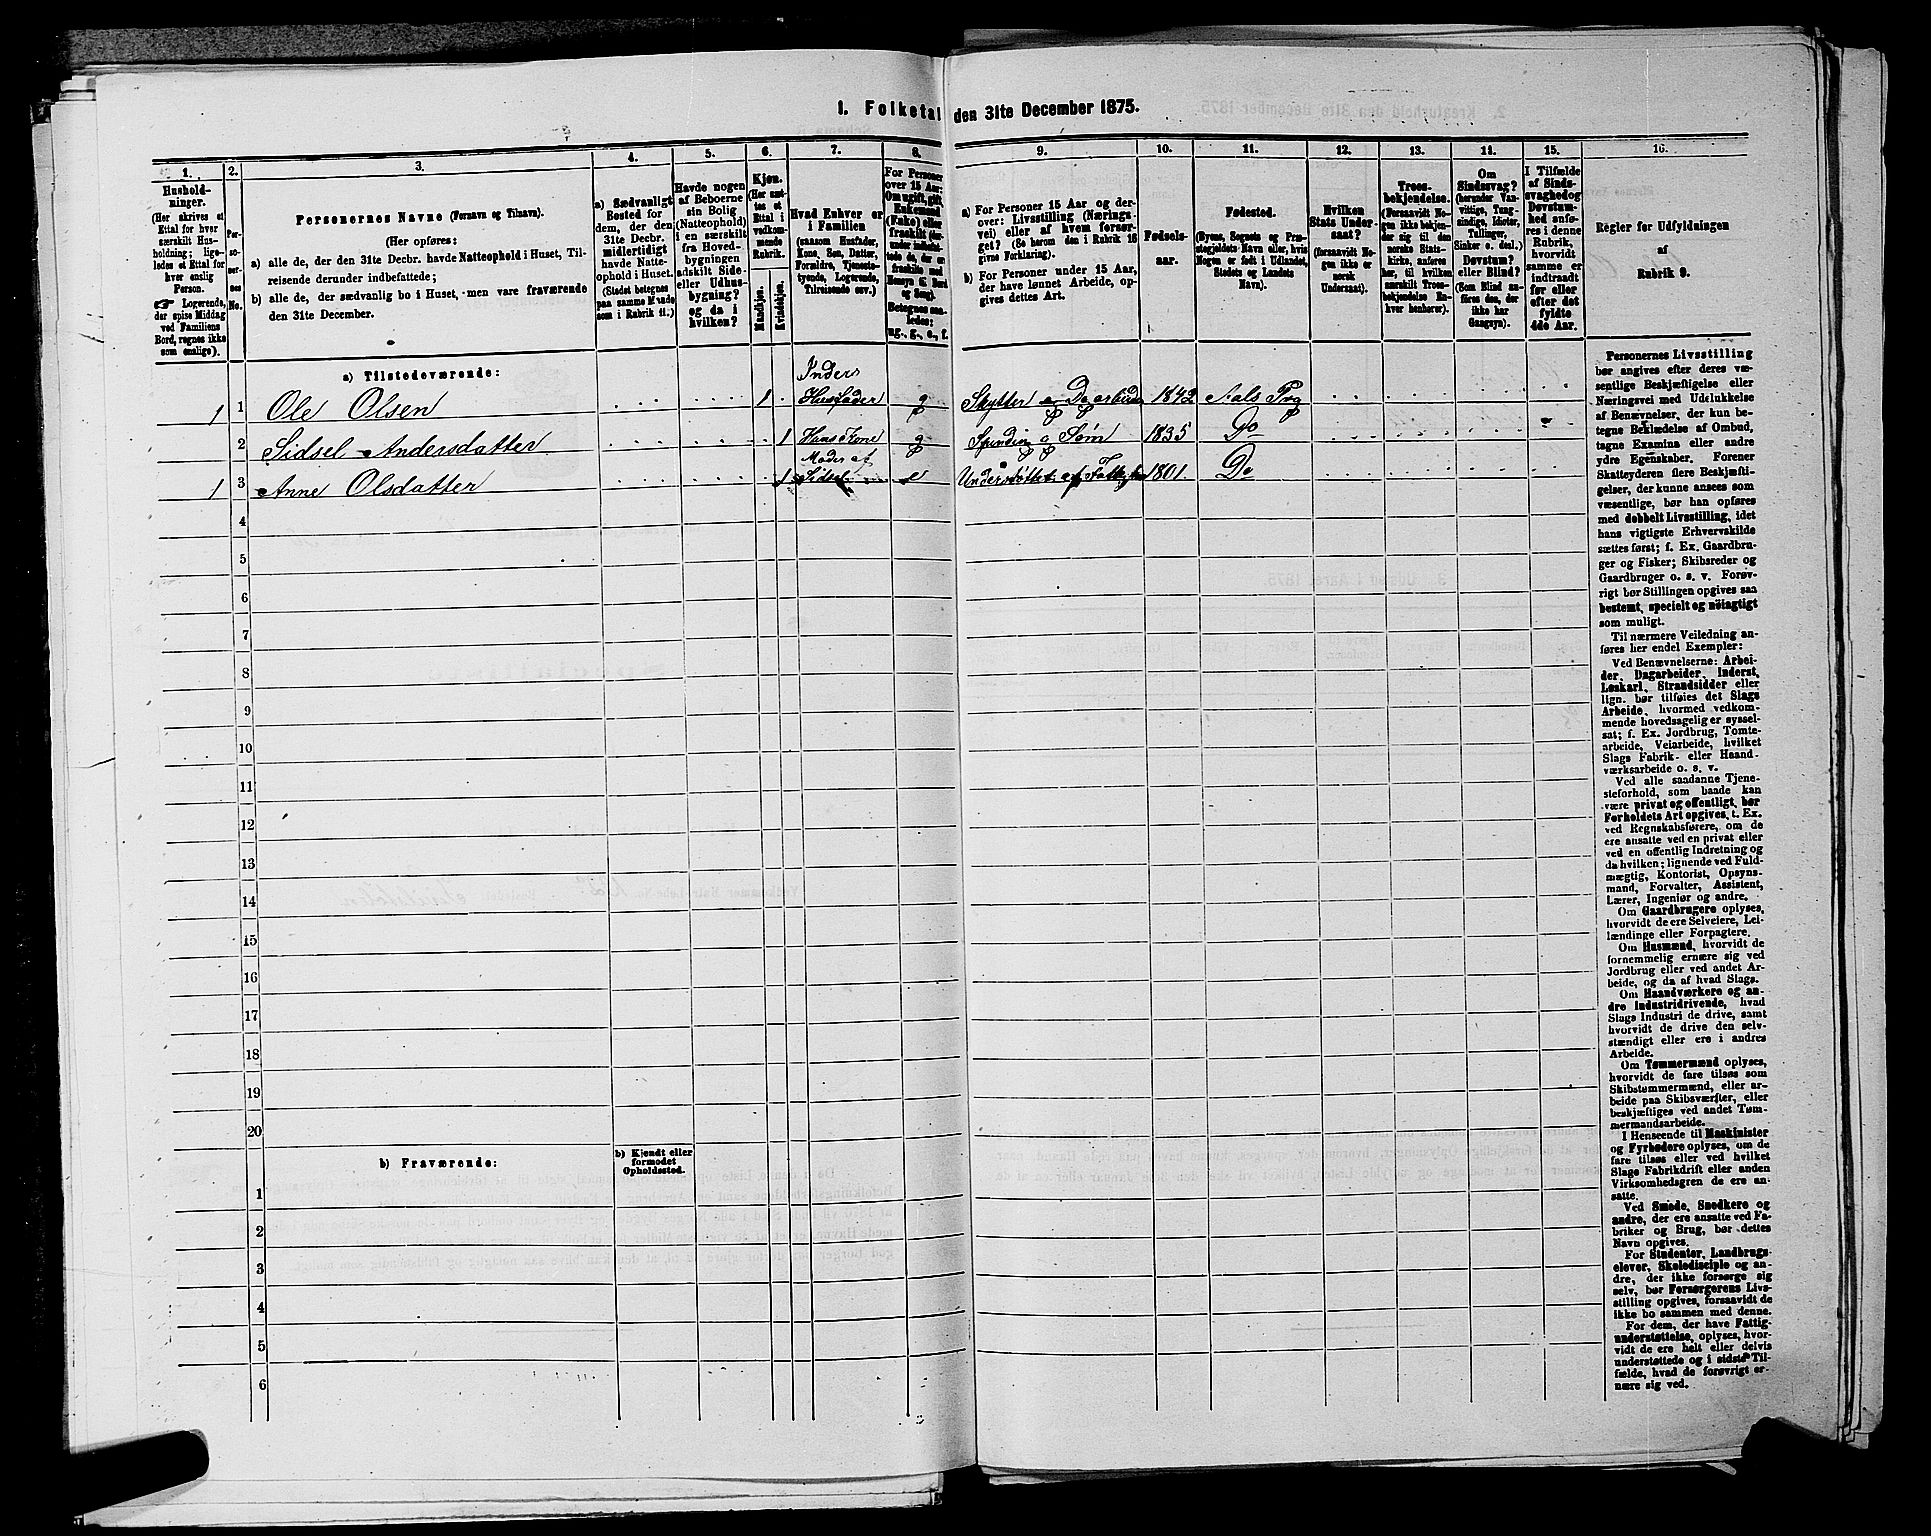 1. Folketal den 31te December 1875.
1. 2. 3. 4. 5. 6. 7. 8. 9. 10. 11. 12. 13. 14. 15. 16.
Hushold-
ninger.
(Her skrives et
Ettal for hver
særskilt Hus-
holdning; lige-
ledes et Ettal for
hver enslig
Person.
☞ Logerende,
der spise Middag
ved Familiens
Bord, regnes ikke
som enslige).
Per-
so-
ner-
nes
No.
Personernes Navne (Fornavn og Tilnavn).
(Her opføres:
a) alle de, der den 31te Decbr. havde Natteophold i Huset, Til-
reisende derunder indbefattede;
b) alle de, der sædvanlig bo i Huset, men vare fraværende
den 31te December.
a) Sædvanligt
Bosted for
dem, der den
31te Decbr.
midlertidigt
havde Natte-
ophold i Huset.
(Stedet betegnes
paa samme Maade
som i Rubrik 11.)
Havde nogen
af Beboerne
sin Bolig
(Natteophold)
i en særskilt
fra Hoved-
bygningen
adskilt Side-
eller Udhus-
bygning?
og da i
hvilken?
Kjøn.
(Her sæt-
tes et
Ettal i
vedkom-
mende
Rubrik.
Mandkjøn.
Kvindekjøn.
Hvad Enhver er
i Familien
(saasom Husfader,
Kone, Søn, Datter,
Forældre, Tjeneste-
tyende, Logerende,
Tilreisende osv.)
For Personer
over 15 Aar:
Om ugift, gift,
Enkemand
(Enke) eller
fraskilt
Betegnes saa-
ledes:
ug., g., e., f.
a) For Personer 15 Aar og der-
over: Livsstilling (Nærings-
vei) eller af hvem forsør-
get? (Se herom den i Rubrik 16
givne Forklaring).
b) For Personer under 15 Aar,
der have lønnet Arbeide, op-
gives dettes Art.
Fødsels-
aar.
Fødested.
(Byens, Sognets og Præ-
stegjeldets Navn eller, hvis
Nogen er født i Udlandet,
Stedets og Landets
Navn).
Hvilken
Stats Under-
saat?
(forsaavidt No-
gen ikke er
norsk
Undersaat).
Troes-
bekjendelse.
(Forsaavidt No-
gen ikke bekjen-
der sig til den
norske Stats-
kirke, anføres
her, til hvilken
særskilt Troes-
bekjendelse En-
hver henhører).
Om
Sindssvag?
(herunder Van-
vittige, Tung-
sindige, Idioter,
Tullinger,
Sinker o. desl.)
Døvstum?
eller Blind?
(Som Blind an-
føres den, der
ikke har
Gangsyn).
I Tilfælde
af Sinds-
svaghed og
Døvstum-
hed anfø-
res i denne
Rubrik,
hvorvidt
samme er
indtraadt
før eller
efter det
fyldte
4de Aar.
Regler for Udfyldningen
af
Rubrik 9.
a) Tilstedeværende:
1 1 Ole Olsen 1 Inders Husfader g 1842 Aals Prg
2 Sidsel Andersdatter 1 Hans Kone g Spinding og Søm 1835 Do
1 3 Anne Olsdatter 1 Moder af Sidsel e 1801. Do
4
5
6
7
8
9
10
11
12
13
14
15
16
17
18
19
20
b) Fraværende:
b) Kjendt eller
formodet
Opholdssted.
1
2
3
4
5
6
Personernes Livsstilling
bør angives efter deres væ-
sentlige Beskjæftigelse eller
Næringsvei med Udelukkelse
af Benævnelser, der kun be-
tegne Beklædelse af Ombud,
tagne Examina eller andre
ydre Egenskaber. Forener
Skatteyderen flere Beskjæfti-
gelser, der kunne ansees som
væsentlige, bør han opføres
med dobbelt Livsstilling, idet
hans vigtigste Erhvervskilde
sættes først; f. Ex. Gaardbru-
ger og Fisker; Skibsreder og
Gaardbruger o. s. v. Forøv-
rigt bør Stillingen opgives saa
bestemt, specielt og nöiagtigt
som muligt.
Til nærmere Veiledning an-
føres her endel Exempler:
Ved Benævnelserne: Arbei-
der, Dagarbeider, Inderst,
Løskarl, Strandsidder eller
lign. bør tilføies det Slags
Arbeide, hvormed vedkom-
mende hovedsagelig er syssel-
sat; f. Ex. Jordbrug, Tomte-
arbeide, Veiarbeide, hvilket
Slags Fabrik- eller Haand-
værksarbeide o. s. v.
Ved alle saadanne Tjene-
steforhold, som baade kan
være privat og offentligt, bør
Forholdets Art opgives, t. Ex.
ved Regnskabsførere, om de
ere ansatte ved en privat eller
ved en offentlig Indretning og
da hvilken; lignende ved Fuld-
mægtig, Kontorist, Opsyns-
mand, Forvalter, Assistent,
Lærer, Ingeniør og andre.
Om Gaardbrugere oplyses,
hvorvidt de ere Selveiere, Lei-
lændinge eller Forpagtere.
Om Husmænd, hvorvidt de
fornemmelig ernære sig ved
Jordbrug eller ved andet Ar-
beide, og da af hvad Slags.
Om Haandværkere og an-
dre Industridrivende, hvad
Slags Industri de drive, samt
hvorvidt de drive den selv-
stændigt eller ere i andres
Arbeide.
Om Tømmermænd oplyses,
hvorvidt de fare tilsøs som
Skibstømmermænd, eller ar-
beide paa Skibsværfter, eller
beskjæftiges ved andet Tøm-
mermandsarbeide.
I Henseende til Maskinister
og Fyrbødere oplyses, om de
fare tilsøs eller ved hvilket
Slags Fabrikdrift eller anden
Virksomhedsgren de ere an-
satte.
Ved Smede, Snedkere og
andre, der ere ansatte ved Fa-
briker og Brug, bør dettes
Navn opgives.
For Studenter, Landbrugs-
elever, Skoledisciple og an-
dre, der ikke forsørge sig
selv, bør Forsørgerens Livs-
stilling opgives, forsaavidt de
ikke bo sammen med denne.
For dem, der have Fattig-
understøttelse, oplyses, hvor-
vidt de ere helt eller delvis
understøttede og i sidste Til-
fælde, hvad de forøvrigt er-
nære sig ved.